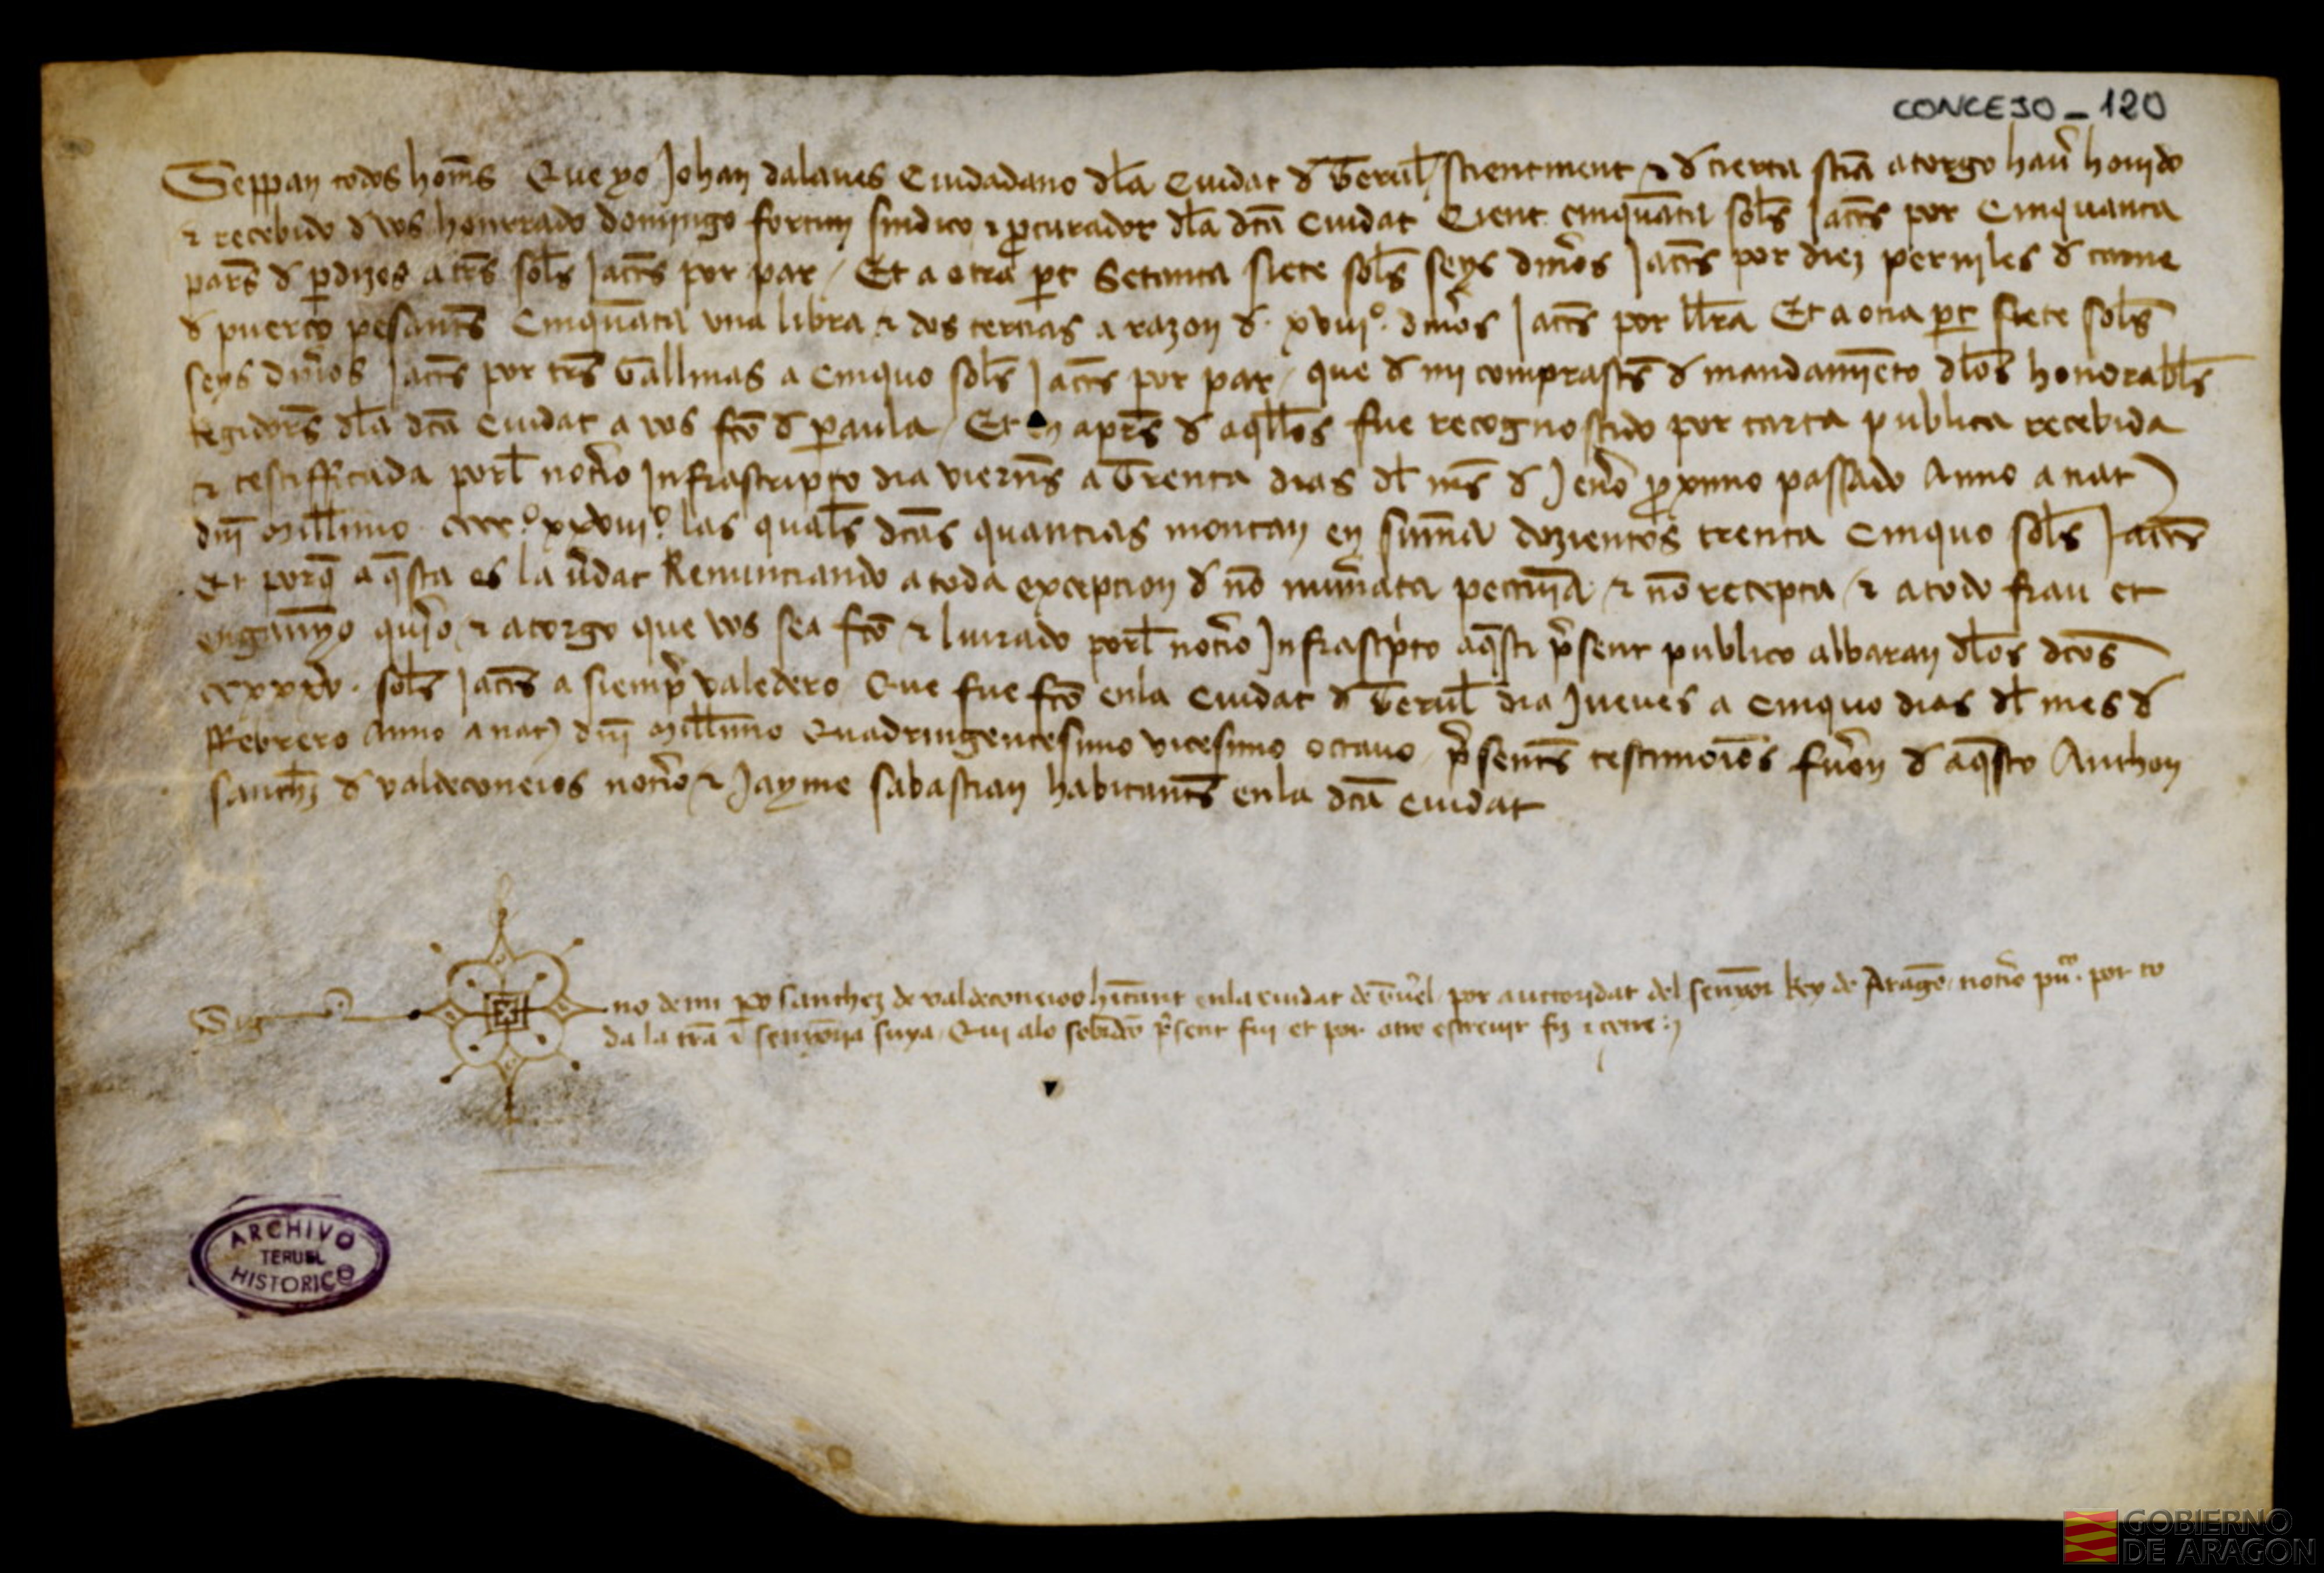 CONCEJO - 120
Seppan todos hom̄s Que yo Johan dalaues Ciudadano dl̄a Ciudat d Teruel scientment ⁊ d cierta sc̄ia atorgo hau̕ houido
⁊ recebido d vos honrrado domingo fortun sindico ⁊ p̱curador dl̄a dc̄a Ciudat Cient cinquāta sol̄s Jacc̄s por Cinquanta
par̄s d p̱dizes a tr̄s sol̄s Jacc̄s por par / Et a otra p̱t Setanta siete sol̄s seys din̕os Jacc̄s por diez perniles d carne
d puerco pesant̄s Cinquāta vna libra ⁊ dos tercias a razon d · xviii° · din̕os Jacc̄s por ll̄ra Et a otra p̱t siete sol̄s
seys din̕os Jacc̄s por tr̄s Gallinas a Cinquo sol̄s Jacc̄s por par / que d mi comprast̄s d mandamiēto dl̄os honorabl̄s
regidor̄s dl̄a dc̄a Ciudat a vos fc̄o d paraula / Et en apr̄s d aqll̄os fue recognoscido por carta publica recebida
⁊ testifficada porl̄ not̕io Infrascripto dia viern̄s a Trenta dias dl̄ m̄s d Jen̕o p̱ximo passado Anno a nat
dn̄i Mill̄imo · cccc° · xxviii° las qual̄s dc̄as quantias montan en sum̄a dozientos trenta Cinquo sol̄s Jacc̄s
Et porq̄ aq̄sta es la v̕dat Renunciando a toda excepcion d nō num̄ata peccunīa · ⁊ nō recepta / ⁊ a todo frau et
enganyo qui̕o ⁊ atorgo que vos sea fc̄o ⁊ liurado porl̄ not̕io Infrasc̕pto aq̄sti p̕sent publico albaran dl̄os dc̄os
ccxxxv · sol̄s Jacc̄s a siemp̕ valedero Que fue fc̄o enla Ciudat d Teruel dia Jueues a Cinquo dias dl̄ mes d
Ffebrero Anno a nat dn̄i Mill̄imo Quadringentesimo vicesimo octauo p̕sent̄s testimoiōs fu̕on d aq̄sto Anthon
sanch̄z d valdeconeios not̕io ⁊ Jayme sabastian habitant̄s enla dc̄a Ciudat
Sig no de mi p̱o sanchez de valdeconeios hītant enla ciudat de t̕uel por auctoridat del senyor Rey de Aragō not̕io pu̕co por to
da la tr̄a ⁊ senyoria suya / Qui alo sobrēdco p̕sent fui et por otro escreuir fiz ⁊ cerre
ARCHIVO
TERUEL
HISTORICO
GOBIERNO
DE ARAGON